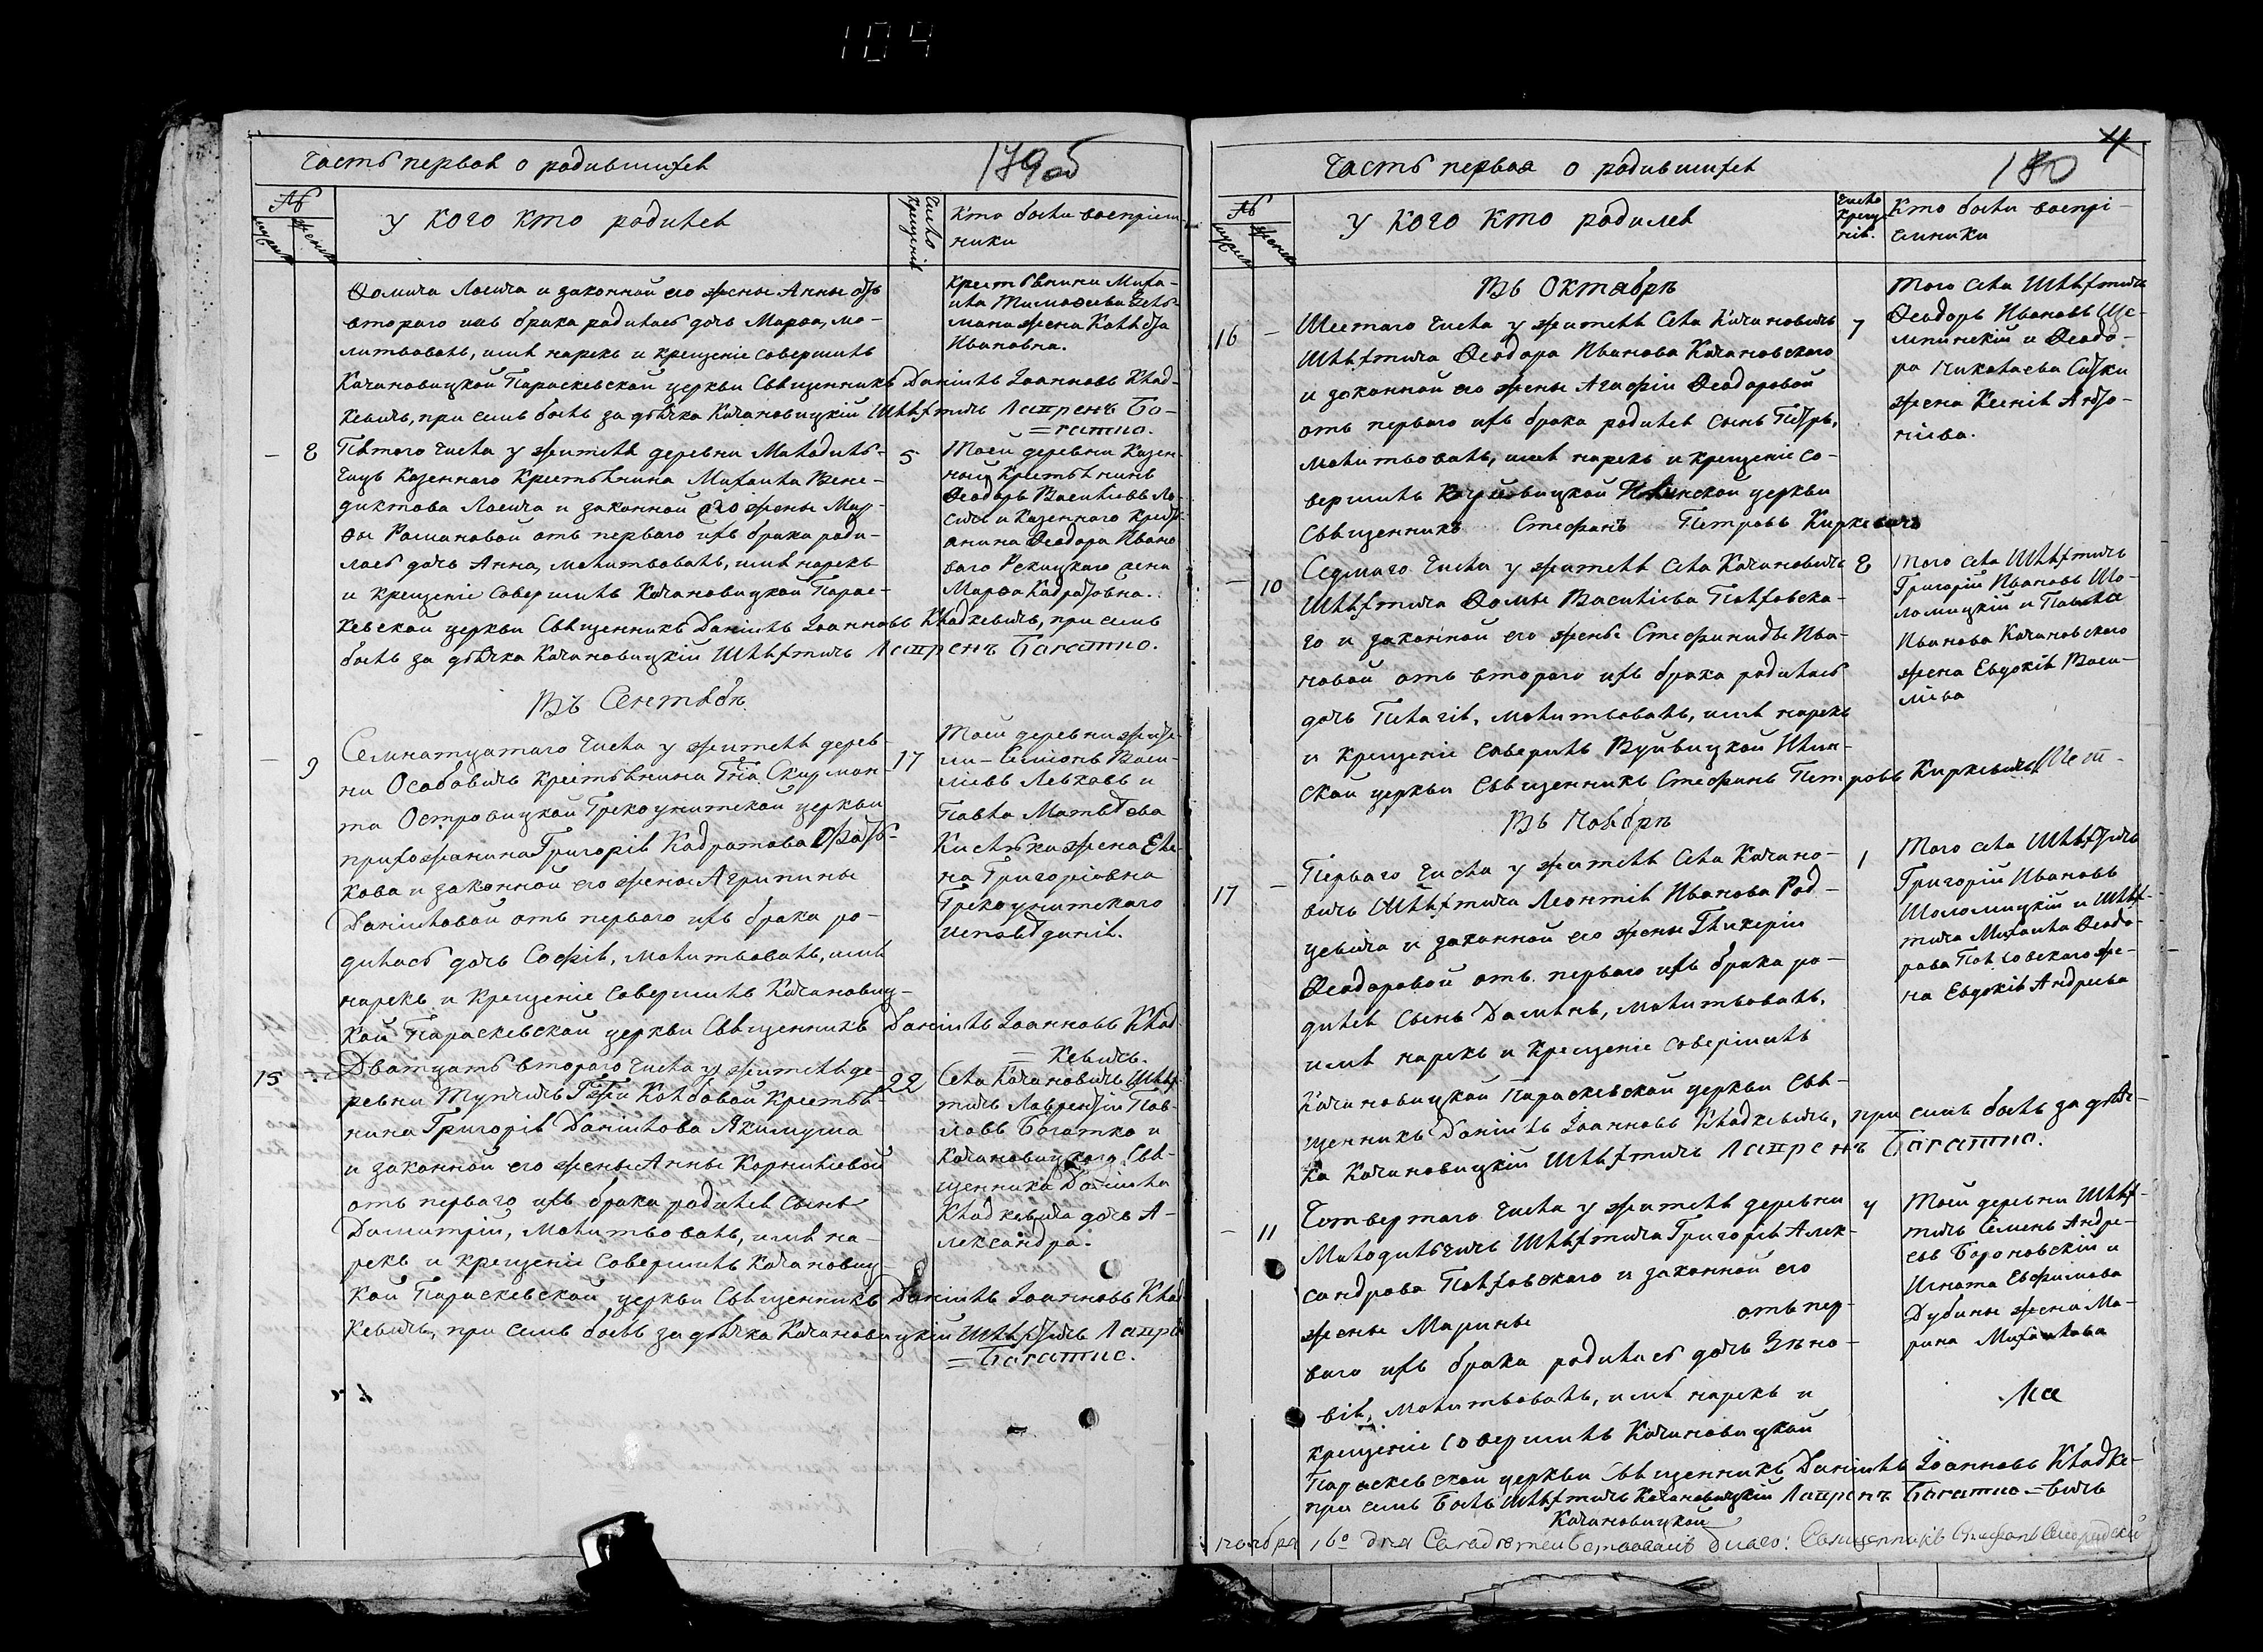 104
Часть первая о родившихся
179об
№
мужеск
женск
у кого кто родился
Число крещенія
Кто были воспріем
ники
Ѳомича Лосича и законной его жены Анны отъ
втораго ихъ брака родилась дочь Марѳа, мо-
литвовалъ, имя нарекъ и крещеніе совершилъ
Качановицкой Параскевской церкви Священникъ Даніилъ Іоанновъ Хлад-
кевичъ, при семъ былъ за дьячка Качановицкій Шляхтичъ Лапренъ Бо-
=гатко.
крестьянини Миха-
ила Тимоѳеева
жена
Ивановна.
- 8
Пятаго числа у жителя деревни Малодиль-
чицъ Казеннаго Крестьянина Михаила Вене-
диктова Лосича и законной его жены Мар-
ѳы Романовой отъ перваго ихъ брака роди-
лась дочь Анна, молитвовалъ, имя нарекъ
и крещеніе совершилъ Качановицкой Парас-
кевской церкви Священникъ Даніилъ Іоанновъ Хладкевичъ, при семъ
былъ за дьячка Качановицкій Шляхтичъ Лапренъ Багатко.
5
Тоей деревни Казен-
ный Крестьянинъ
Ѳеодоръ Васильевъ Ло-
сичъ и Казеннаго Крестъ-
янина Ѳеодора Ивано
ваго жена
Марѳа Кадратовна.
Въ Сентябрѣ
- 9
Семнатцатаго числа у жителя дерев-
ни Особовичь крестьянина Гна Скирмон-
та Островицкой Грекоунитской церкви
прихожанина Григорія Кадратова
кова и законной его жены Агрипины
Даниловой отъ перваго ихъ брака ро-
дилась дочь Софія, молитвовалъ, имя
нарекъ и крещеніе совершилъ Качановиц-
кой Параскевской церкви Священникъ Даніилъ Іоанновъ Хлад-
= кевичъ.
17
Тоей деревни жите-
ли - Симіонъ Васи-
ліевъ Левковъ и
Павла Матвѣева
жена Еле-
на Григоріовна
Грекоунитскаго
исповѣданія.
15 -
Дватцать втораго числа у жителя де-
ревни Тупчичь Гжи Колбовой Крестья-
нина Григорія Данилова Якимчука
и законной его жены Анны Корниліевой
отъ перваго ихъ брака родился сынъ
Димитрій, молитвовалъ, имя на-
рекъ и крещеніе совершилъ Качановиц
кой Параскевской церкви Священникъ Даніилъ Іоанновъ Хлад
кевичъ, при семъ былъ за дьячка Качановицкій Шляхтичъ Лапрѣ
=Багатко.
22
Села Качановичь Шлях-
тичъ Лаврентій Пав-
ловъ Богатко и
Качановицкого Свя-
щенника Даніила
Хладкевича дочь А-
лександра.
4
Часть первая о родившихся
180
№
мужеск
женск
у кого кто родился
Число
креще
нія.
Кто были воспрі-
емники
Въ Октябрѣ
16 -
Шестаго числа у жителя Села Качановичь
Шляхтича Ѳеодора Иванова Качановскаго
и законной его жены Агафіи Ѳеодоровой
отъ перваго ихъ брака родился сынъ Петръ,
молитвовалъ, имя нарекъ и крещеніе со-
вершилъ церкви
Священникъ Стефанъ Петровъ Киркевичъ
7
Того села Шляхтичъ
Ѳеодоръ Ивановъ
и Ѳеодо-
ра Николаева
жена Ксенія Анто-
ніева.
- 10
Седмаго числа у жителя Села Качановичь
Шляхтича Ѳомы Василіева Полховска-
го и законной его жены Стефиниды Ива-
новой отъ втораго ихъ брака родилась
дочь Пилагія, молитвовалъ, имя нарекъ
и крещеніе совершилъ Вуйвицкой Илин-
ской церкви Священникъ Стефанъ Петровъ Киркевичъ
8
Того села Шляхтичъ
Григорій Ивановъ Шо-
ломицкій и Павла
Иванова Качановскаго
жена Евдокія Васи-
ліева
Въ Ноябрѣ
17 -
Перваго числа у жителя Села Качано-
вичь Шляхтича Леонтія Иванова Рад-
цевича и законной его жены Гликеріи
Ѳеодоровой отъ перваго ихъ брака ро-
дился сынъ Даміянъ, молитвовалъ,
имя нарекъ и крещеніе совершилъ
Качановицкой Параскевской церкви Свя-
щенникъ Даніилъ Іоанновъ Хладкевичъ, при семъ былъ за дьяч-
ка Качановицкій Шляхтичъ Лапренъ Багатко.
1
Того села Шляхтичъ
Григорій Ивановъ
Шоломицкій и Шлях-
тича Михаила Ѳеодо-
рова Полховскаго же-
на Евдокія Андреева
- 11
Четвертаго числа у жителя деревни
Малодильчичь Шляхтича Григорія Алек-
сандрова Полховскаго и законной его
жены Марины отъ пер-
ваго ихъ брака родилась дочь Зѣно-
вія, молитвовалъ, имя нарекъ и
крещеніе совершилъ Качановицкой
Параскевской церкви Священникъ Даніилъ Іоанновъ Хладке-
при семъ былъ Шляхтичъ Качановицкій Лапренъ Багатко =вичъ
4
Тоей деревни Шлях-
тичъ Семенъ Андре-
евъ Бороновскій и
Игната Евфимова
Дубины жена Ма-
рина Михайлова
Качановицкой
ноября 16го дня Свидѣтельствовалъ Благо: Священникъ